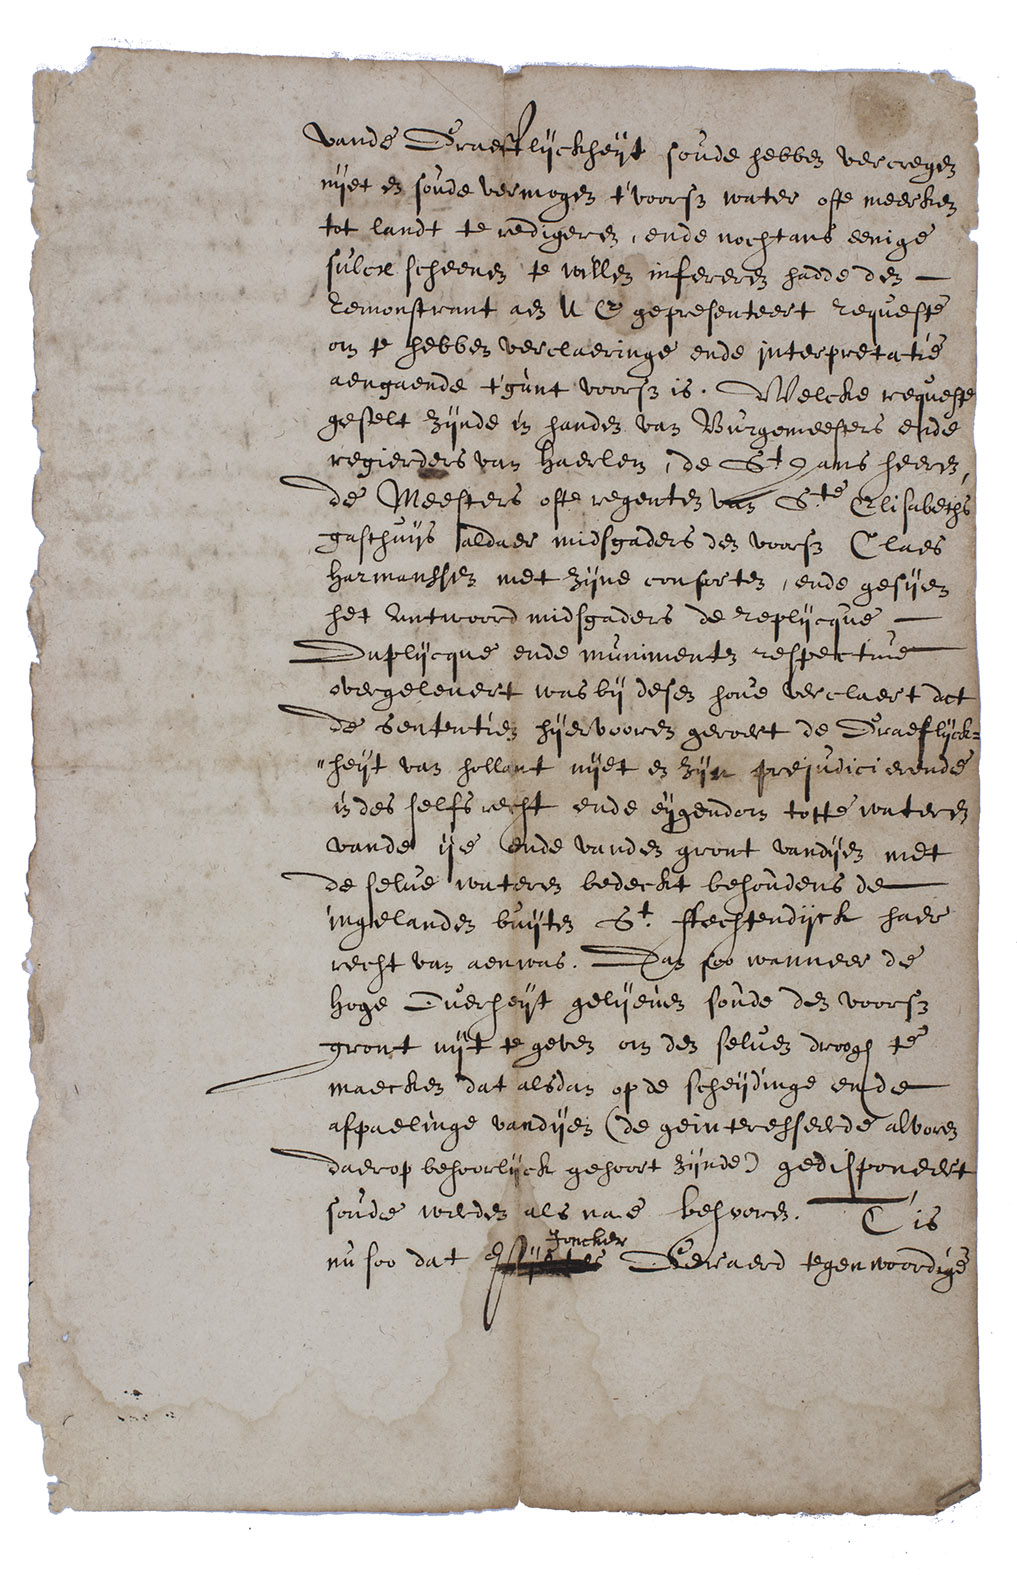 vande Graeflyckheyt soude hebben vercregen
nyet en soude vermogen t'voorsz water ofte meerken
tot landt te redigeren, ende nochtans eenige
sulcx scheenen te willen infereren hadde den
Remonstrant aen U E gepresenteert requeste
om te hebben verclaeringe ende interpretatie
aengaende t'gunt voorsz is. Welcke requeste
gestelt zynde in handen van Burgemeesters ende
regierders van Haerlem, de St Jans heeren,
de Meesters ofte regenten van Ste Elisabeths
gasthuys aldaer midsgaders den voorsz Claes
Harmanssen met zyne consorten, ende gesyen
het Antwoord midsgaders de Replycque
Duplycque ende munimenten respective
overgelevert was by desen hove verclaert dat
de Sententien hyervooren geroert de Graeflyck=
"heyt van Hollant nyet en zyn prejudicierende
in des selfs recht ende eygendom totte wateren
vande ije ende vanden gront vandyen met
de selve wateren bedeckt behoudens de
ingelanden buyten St. Aechtendyck haer
recht van aenwas. Dan soo wanneer de
hoge Overheyt gelyeven soude den voorsz
gront uyt te geven om den selven droogh te
maecken dat alsdan op de scheydinge ende
afpaelinge vandyen (de geinteresseerde alvoren
daerop behoorlyck gehoort zynde) gedisponeert
soude werden als nae behooren. T'is
Joncker
nu soo dat Gewaerd tegenwoordige